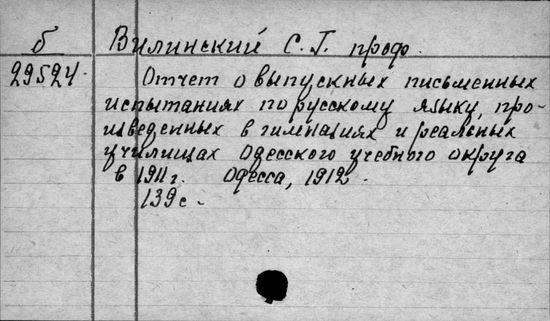 б Вилинский С. Г. проф.
29524. Отчет о выпускных письменных
испытаниях по русскому языку, про-
изведенных в гимназиях и реальных
училищах Одесского учебного округа
в 1911г. Одесса, 1912.
139с.